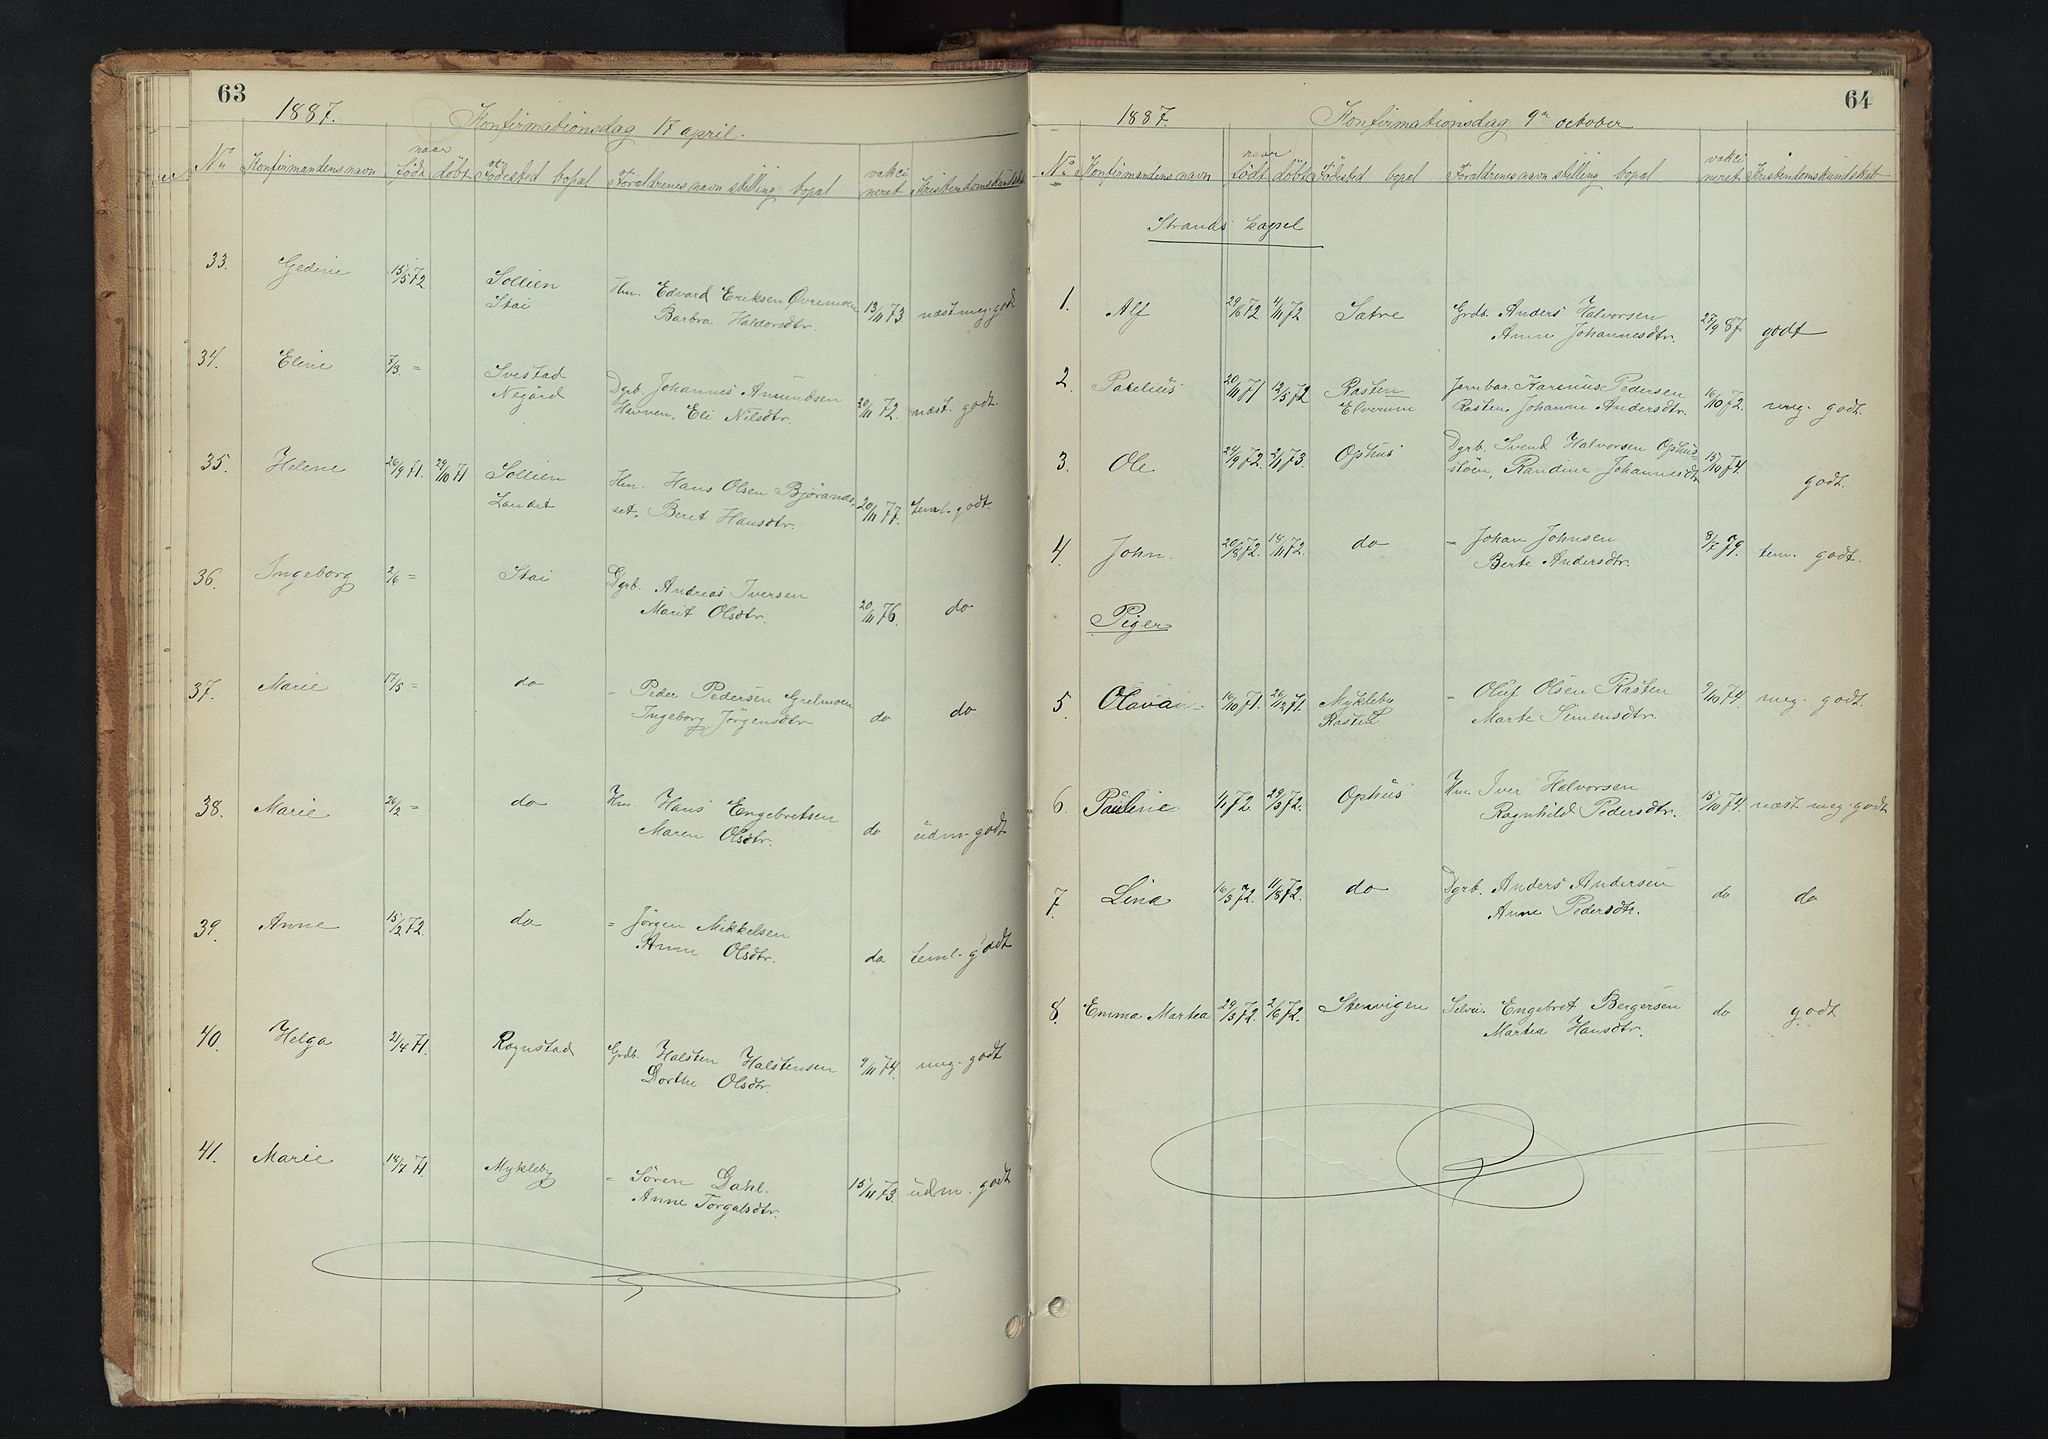 63
1887. Konfirmationsdag 17 april.
No Konfirmandens navn naar født døbt Fødested bopæl Forældrenes navn stilling bopæl vakcineret Kristendomskundskab
33. Gedine 15/5 72 Sollien Hm. Edvard Eriksen Övremoen 13/11 73 næst meg. godt
Stai Barbra Haldorsdtr.
34. Eline 7/3 = Svestad Dgrb. Johannes Amundsen 20/11 72 næst. godt.
Negård Havnen, Eli Nilsdtr.
35. Helene 26/9 71. 29/10 71 Sollien Hm. Hans Olsen Björaness- 20/11 77. teml. godt.
Landet set. Beret Hansdtr.
36. Ingeborg 2/6 = Stai Dgrb. Andreas Iversen 20/11 76. do
Marit Olsdtr.
37. Marie 17/5 = do = Peder Pedersen Grelmoen do do
Ingeborg Jörgensdtr
38. Marie 26/2 = do Hm. Hans Engebretsen do údm. godt
Maren Olsdtr.
39. Anne 15/2 72. do = Jörgen Mikkelsen do teml. godt
Anne Olsdtr.
40. Helga 2/4 71. Rognstad Grdb. Halsten Halstensen 9/11 74. meg. godt
Dorthe Olsdtr.
41. Marie 18/7 71. Mykleby = Sören Dahl. 15/11 73. údm. godt
Anne Torgalsdtr.
64
1887. Konfirmationsdag 9de october
No Konfirmandens navn naar født døbt Fødested bopel Forældrenes navn stilling bopel vakcineret Kristendomskundskab
Strands kapel
1. Alf 29/6 72 4/11 72 Sætre Grdb. Anders Halvorsen 27/9 87. godt
Anne Johannesdtr.
2. Patelius 20/11 71 12/5 72 Rasten Jernbar. Karenus Pedersen 16/10 72. meg. godt.
Elverum Rasten Johanne Andersdtr.
3. Ole 24/9 72. 2/1 73. Ophus Dgrb. Svend Halvorsen Ophus- 15/10 74. godt.
stöen, Randine Johannesdtr
4. John. 20/8 72. 18/11 72. do = Johan Johnsen 8/7 79. tem. godt.
Berte Andersdtr.
Piger
5. Olava 16/10 71. 26/12 71. Mykleby = Oluf Olsen Rasten 9/10 74. meg. godt.
Rasten Marte Simensdtr.
6. Pauline 4/1 72. 29/3 72. Ophus Hm. Iver Halvorsen 15/10 74. næst. meg. godt
Ragnhild Pedersdtr.
7. Lina 16/3 72. 11/8 72. do Dgrb. Anders Andersen do do
Anne Pedersdtr.
8. Emma Martea 29/3 72. 2/6 72. Stenvigen Selvei. Engebret Bergersen do godt
Martea Hansdtr.